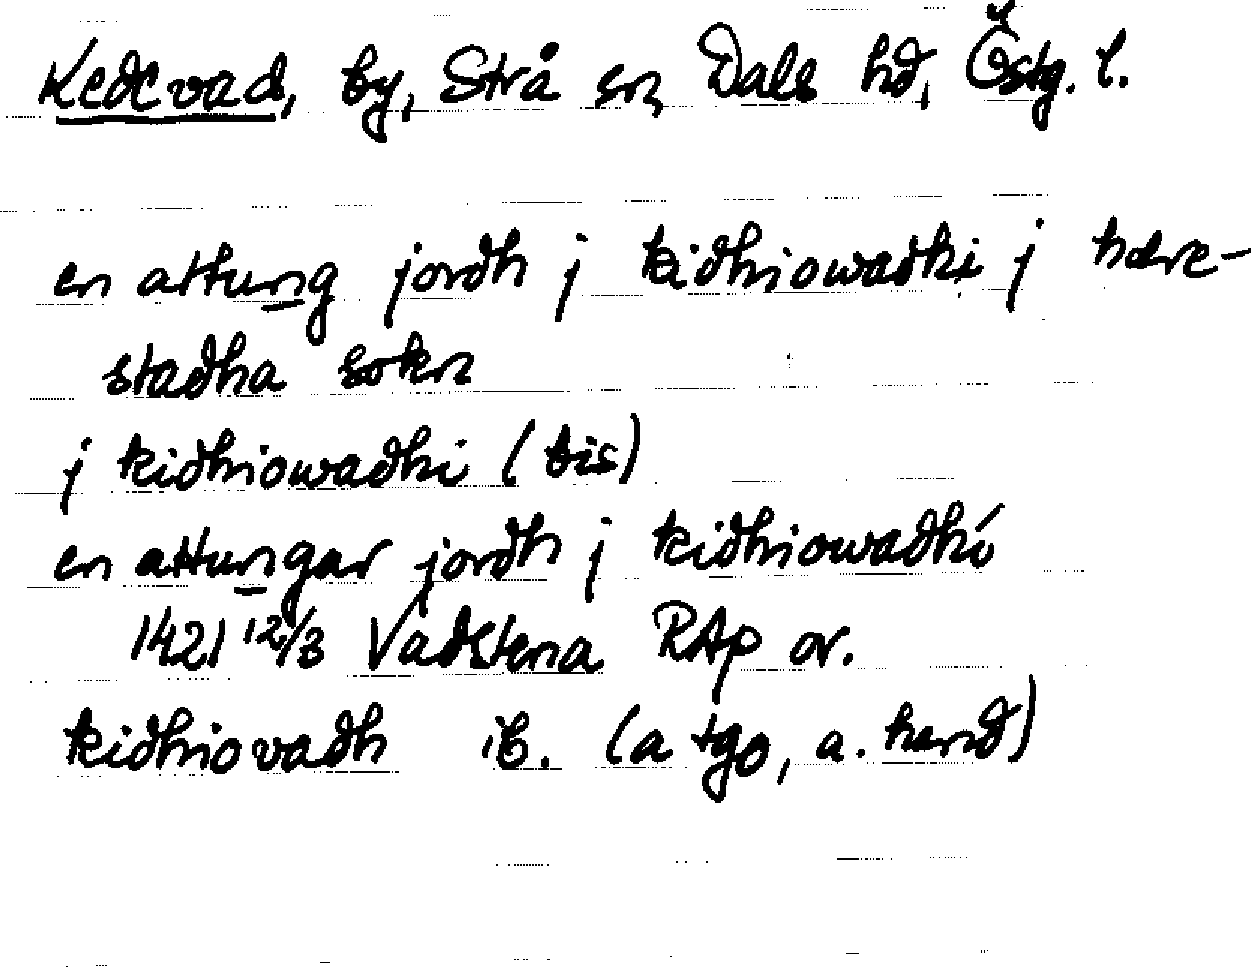 Kedevad, by, Strå sn, Dals hd, Östg. l.
en attung jordh j kidhiowadhi j hære-
stadha sokn
j kidhiowadhi (bis)
en attungar jordh j kidhiowadhi
1421 12/3 Vadstena RAp or.
kidhiovadh ib. (a tgo, a. hand)